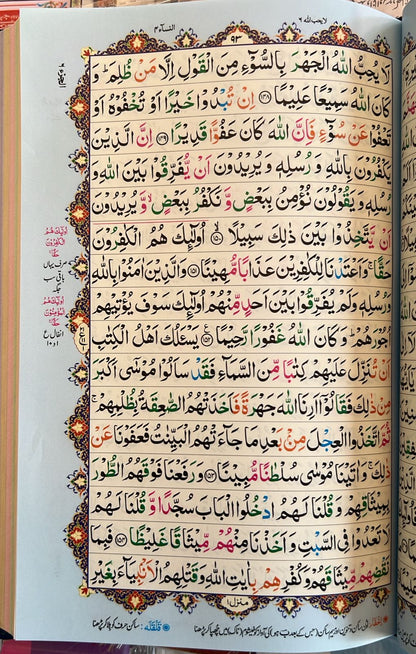 لا یحب الله ۶
النسآء ۴
۹۳
لَا يُحِبُّ اللّٰهُ الْجَهْرَ بِالسُّوْٓءِ مِنَ الْقَوْلِ اِلَّا مَنْ ظُلِمَ ؕ وَ
كَانَ اللّٰهُ سَمِيْعًا عَلِيْمًا ﴿۱۴۸﴾ اِنْ تُبْدُوْا خَيْرًا اَوْ تُخْفُوْهُ اَوْ
تَعْفُوْا عَنْ سُوْٓءٍ فَاِنَّ اللّٰهَ كَانَ عَفُوًّا قَدِيْرًا ﴿۱۴۹﴾ اِنَّ الَّذِيْنَ
يَكْفُرُوْنَ بِاللّٰهِ وَ رُسُلِهٖ وَ يُرِيْدُوْنَ اَنْ يُّفَرِّقُوْا بَيْنَ اللّٰهِ وَ
رُسُلِهٖ وَ يَقُوْلُوْنَ نُؤْمِنُ بِبَعْضٍ وَّ نَكْفُرُ بِبَعْضٍ ۙ وَّ يُرِيْدُوْنَ
اَنْ يَّتَّخِذُوْا بَيْنَ ذٰلِكَ سَبِيْلًا ﴿۱۵۰﴾ اُولٰٓئِكَ هُمُ الْكٰفِرُوْنَ
حَقًّا ۚ وَ اَعْتَدْنَا لِلْكٰفِرِيْنَ عَذَابًا مُّهِيْنًا ﴿۱۵۱﴾ وَ الَّذِيْنَ اٰمَنُوْا بِاللّٰهِ
وَ رُسُلِهٖ وَ لَمْ يُفَرِّقُوْا بَيْنَ اَحَدٍ مِّنْهُمْ اُولٰٓئِكَ سَوْفَ يُؤْتِيْهِمْ
اُجُوْرَهُمْ ؕ وَ كَانَ اللّٰهُ غَفُوْرًا رَّحِيْمًا ﴿۱۵۲﴾ يَسْـَٔلُكَ اَهْلُ الْكِتٰبِ
اَنْ تُنَزِّلَ عَلَيْهِمْ كِتٰبًا مِّنَ السَّمَآءِ فَقَدْ سَاَلُوْا مُوْسٰٓى اَكْبَرَ
مِنْ ذٰلِكَ فَقَالُوْٓا اَرِنَا اللّٰهَ جَهْرَةً فَاَخَذَتْهُمُ الصّٰعِقَةُ بِظُلْمِهِمْ ۚ
ثُمَّ اتَّخَذُوا الْعِجْلَ مِنْۢ بَعْدِ مَا جَآءَتْهُمُ الْبَيِّنٰتُ فَعَفَوْنَا عَنْ
ذٰلِكَ ۚ وَ اٰتَيْنَا مُوْسٰى سُلْطٰنًا مُّبِيْنًا ﴿۱۵۳﴾ وَ رَفَعْنَا فَوْقَهُمُ الطُّوْرَ
بِمِيْثَاقِهِمْ وَ قُلْنَا لَهُمُ ادْخُلُوا الْبَابَ سُجَّدًا وَّ قُلْنَا لَهُمْ
لَا تَعْدُوْا فِى السَّبْتِ وَ اَخَذْنَا مِنْهُمْ مِّيْثَاقًا غَلِيْظًا ﴿۱۵۴﴾ فَبِمَا
نَقْضِهِمْ مِّيْثَاقَهُمْ وَ كُفْرِهِمْ بِاٰيٰتِ اللّٰهِ وَ قَتْلِهِمُ الْاَنْۢبِيَآءَ بِغَيْرِ
منزل ۱
اُولٰٓئِكَ هُمُ
الْكٰفِرُوْنَ
حَقًّا
صرف یہاں
باقی سب
جگہ
اُولٰٓئِكَ هُمُ
الْمُؤْمِنُوْنَ
حَقًّا
انفال ع
قَلْقَلَه: ساکن حرف کو ہلا کر پڑھنا